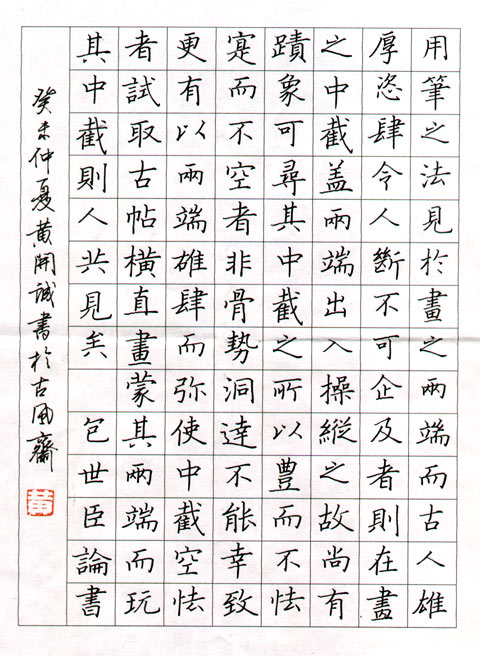 用筆之法見於畫之兩端而古人雄
厚恣肆令人斷不可企及者則在畫
之中截盖兩端出入操縱之故尚有
蹟象可尋其中截之所以豊而不怯
寔而不空者非骨勢洞達不能幸致
更有以兩端雄肆而弥使中截空怯
者試取古帖橫直畫蒙其兩端而玩
其中截則人共見矣 包世臣論書
癸未仲夏黄開誠書於古風齋
黄